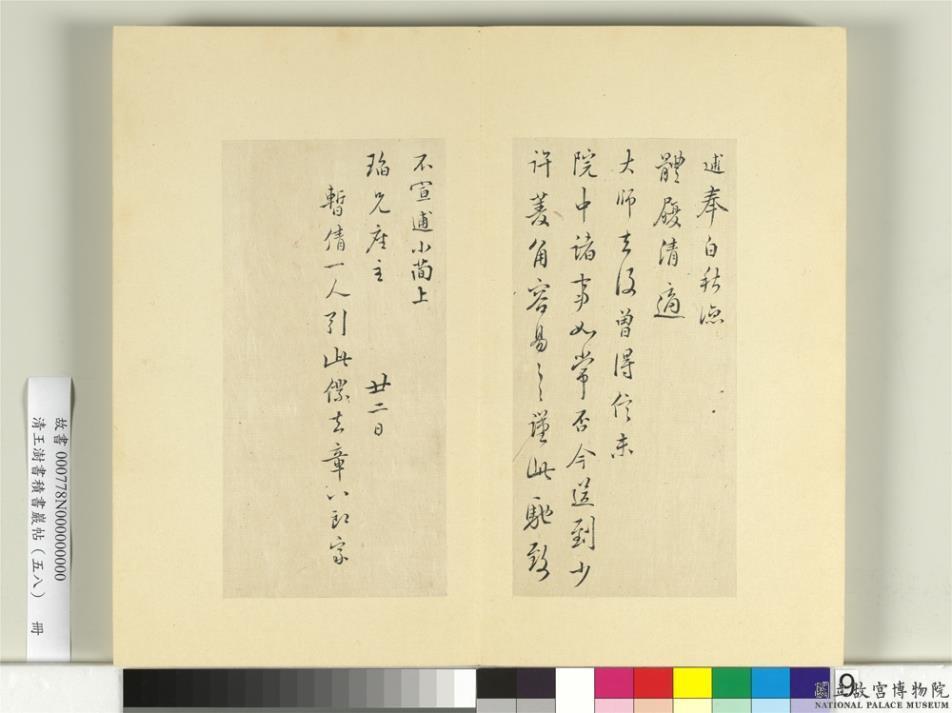 逋奉白秋涼
體履清適
大師去後曾得信未
院中諸事如常否今送到少
許菱角容易之謹此馳致
不宣逋小簡上
瑫兄座主
廿二日
暫倩一人引此僕去章八郎家
故書 000778N000000000
清王澍書積書巖帖（五八） 冊
9
國立故宮博物院
NATIONAL PALACE MUSEUM